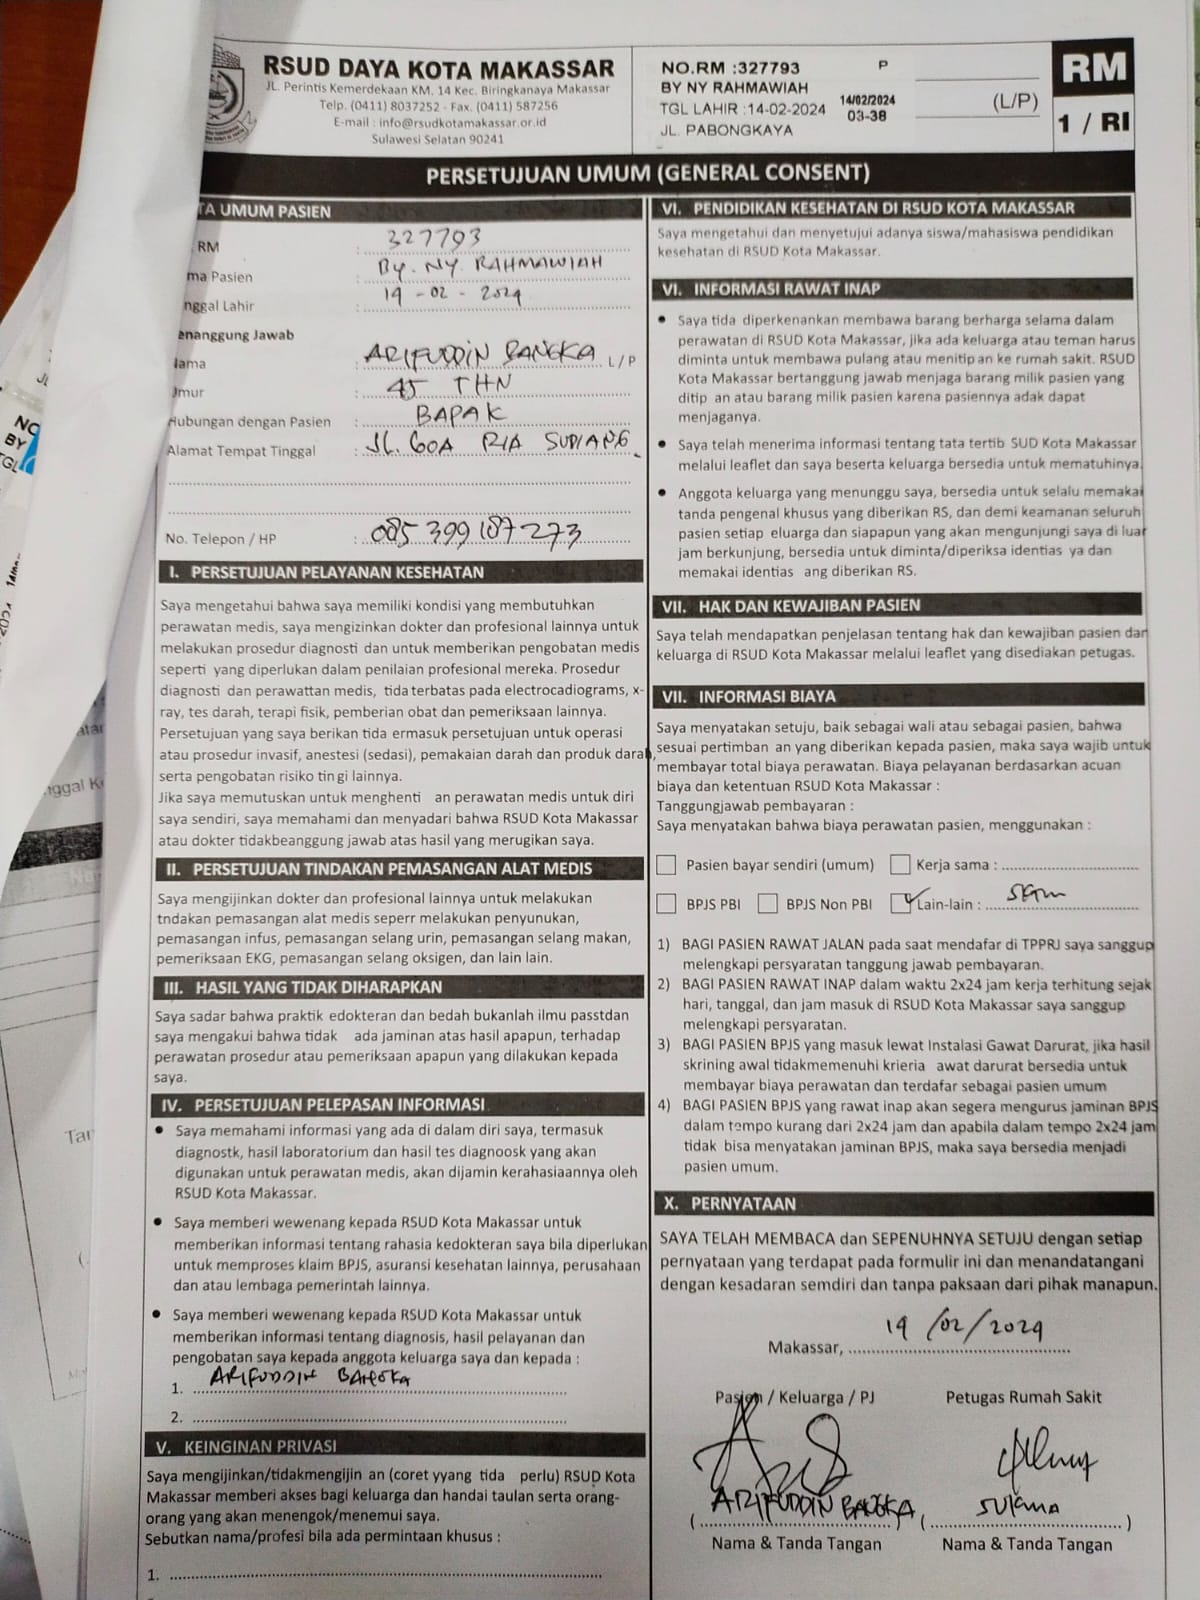 RSUD DAYA KOTA MAKASSAR
JL. Perintis Kemerdekaan KM. 14 Kec. Biringkanaya Makassar
Telp. (0411) 8037252 - Fax. (0411) 587256
E-mail : info@rsudkotamakassar.or.id
Sulawesi Selatan 90241
NO.RM :327793 P
BY NY RAHMAWIAH
TGL LAHIR :14-02-2024 14/02/2024
03-38
JL. PABONGKAYA
(L/P)
RM
1 / RI
PERSETUJUAN UMUM (GENERAL CONSENT)
TA UMUM PASIEN
RM : 327793
ma Pasien : BY. NY. RAHMAWIAH
nggal Lahir : 14 - 02 - 2024
enanggung Jawab
Nama : ARIFUDDIN BANGKA L/P
Umur : 45 THN
Hubungan dengan Pasien : BAPAK
Alamat Tempat Tinggal : JL. GOA RIA SUDIANG
No. Telepon / HP : 085 399 187 273
I. PERSETUJUAN PELAYANAN KESEHATAN
Saya mengetahui bahwa saya memiliki kondisi yang membutuhkan
perawatan medis, saya mengizinkan dokter dan profesional lainnya untuk
melakukan prosedur diagnosti dan untuk memberikan pengobatan medis
seperti yang diperlukan dalam penilaian profesional mereka. Prosedur
diagnosti dan perawattan medis, tida terbatas pada electrocadiograms, x-
ray, tes darah, terapi fisik, pemberian obat dan pemeriksaan lainnya.
Persetujuan yang saya berikan tida ermasuk persetujuan untuk operasi
atau prosedur invasif, anestesi (sedasi), pemakaian darah dan produk darah,
serta pengobatan risiko tin gi lainnya.
Jika saya memutuskan untuk menghenti an perawatan medis untuk diri
saya sendiri, saya memahami dan menyadari bahwa RSUD Kota Makassar
atau dokter tidakbeanggung jawab atas hasil yang merugikan saya.
II. PERSETUJUAN TINDAKAN PEMASANGAN ALAT MEDIS
Saya mengijinkan dokter dan profesional lainnya untuk melakukan
tndakan pemasangan alat medis seperr melakukan penyunukan,
pemasangan infus, pemasangan selang urin, pemasangan selang makan,
pemeriksaan EKG, pemasangan selang oksigen, dan lain lain.
III. HASIL YANG TIDAK DIHARAPKAN
Saya sadar bahwa praktik edokteran dan bedah bukanlah ilmu passtdan
saya mengakui bahwa tidak ada jaminan atas hasil apapun, terhadap
perawatan prosedur atau pemeriksaan apapun yang dilakukan kepada
saya.
IV. PERSETUJUAN PELEPASAN INFORMASI
• Saya memahami informasi yang ada di dalam diri saya, termasuk
diagnostk, hasil laboratorium dan hasil tes diagnoosk yang akan
digunakan untuk perawatan medis, akan dijamin kerahasiaannya oleh
RSUD Kota Makassar.
• Saya memberi wewenang kepada RSUD Kota Makassar untuk
memberikan informasi tentang rahasia kedokteran saya bila diperlukan
untuk memproses klaim BPJS, asuransi kesehatan lainnya, perusahaan
dan atau lembaga pemerintah lainnya.
• Saya memberi wewenang kepada RSUD Kota Makassar untuk
memberikan informasi tentang diagnosis, hasil pelayanan dan
pengobatan saya kepada anggota keluarga saya dan kepada :
1. ARIFUDDIN BANGKA
2.
V. KEINGINAN PRIVASI
Saya mengijinkan/tidakmengijin an (coret yyang tida perlu) RSUD Kota
Makassar memberi akses bagi keluarga dan handai taulan serta orang-
orang yang akan menengok/menemui saya.
Sebutkan nama/profesi bila ada permintaan khusus :
1.
VI. PENDIDIKAN KESEHATAN DI RSUD KOTA MAKASSAR
Saya mengetahui dan menyetujui adanya siswa/mahasiswa pendidikan
kesehatan di RSUD Kota Makassar.
VI. INFORMASI RAWAT INAP
• Saya tida diperkenankan membawa barang berharga selama dalam
perawatan di RSUD Kota Makassar, jika ada keluarga atau teman harus
diminta untuk membawa pulang atau menitip an ke rumah sakit. RSUD
Kota Makassar bertanggung jawab menjaga barang milik pasien yang
ditip an atau barang milik pasien karena pasiennya adak dapat
menjaganya.
• Saya telah menerima informasi tentang tata tertib SUD Kota Makassar
melalui leaflet dan saya beserta keluarga bersedia untuk mematuhinya.
• Anggota keluarga yang menunggu saya, bersedia untuk selalu memakai
tanda pengenal khusus yang diberikan RS, dan demi keamanan seluruh
pasien setiap eluarga dan siapapun yang akan mengunjungi saya di luar
jam berkunjung, bersedia untuk diminta/diperiksa identias ya dan
memakai identias ang diberikan RS.
VII. HAK DAN KEWAJIBAN PASIEN
Saya telah mendapatkan penjelasan tentang hak dan kewajiban pasien dan
keluarga di RSUD Kota Makassar melalui leaflet yang disediakan petugas.
VII. INFORMASI BIAYA
Saya menyatakan setuju, baik sebagai wali atau sebagai pasien, bahwa
sesuai pertimban an yang diberikan kepada pasien, maka saya wajib untuk
membayar total biaya perawatan. Biaya pelayanan berdasarkan acuan
biaya dan ketentuan RSUD Kota Makassar :
Tanggungjawab pembayaran :
Saya menyatakan bahwa biaya perawatan pasien, menggunakan :
Pasien bayar sendiri (umum) Kerja sama :
BPJS PBI BPJS Non PBI Lain-lain :
1) BAGI PASIEN RAWAT JALAN pada saat mendafar di TPPRJ saya sanggup
melengkapi persyaratan tanggung jawab pembayaran.
2) BAGI PASIEN RAWAT INAP dalam waktu 2x24 jam kerja terhitung sejak
hari, tanggal, dan jam masuk di RSUD Kota Makassar saya sanggup
melengkapi persyaratan.
3) BAGI PASIEN BPJS yang masuk lewat Instalasi Gawat Darurat, jika hasil
skrining awal tidakmemenuhi krieria awat darurat bersedia untuk
membayar biaya perawatan dan terdafar sebagai pasien umum
4) BAGI PASIEN BPJS yang rawat inap akan segera mengurus jaminan BPJS
dalam tempo kurang dari 2x24 jam dan apabila dalam tempo 2x24 jam
tidak bisa menyatakan jaminan BPJS, maka saya bersedia menjadi
pasien umum.
X. PERNYATAAN
SAYA TELAH MEMBACA dan SEPENUHNYA SETUJU dengan setiap
pernyataan yang terdapat pada formulir ini dan menandatangani
dengan kesadaran semdiri dan tanpa paksaan dari pihak manapun.
Makassar, 14/02/2024
Pasien / Keluarga / PJ Petugas Rumah Sakit
(ARIFUDDIN BANGKA) (Sukma)
Nama & Tanda Tangan Nama & Tanda Tangan